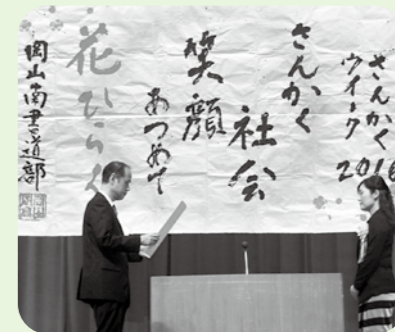 さんかく
ウイーク
2016
さんかく
社会
笑顔
あつめて
花ひらく
岡山南書道部